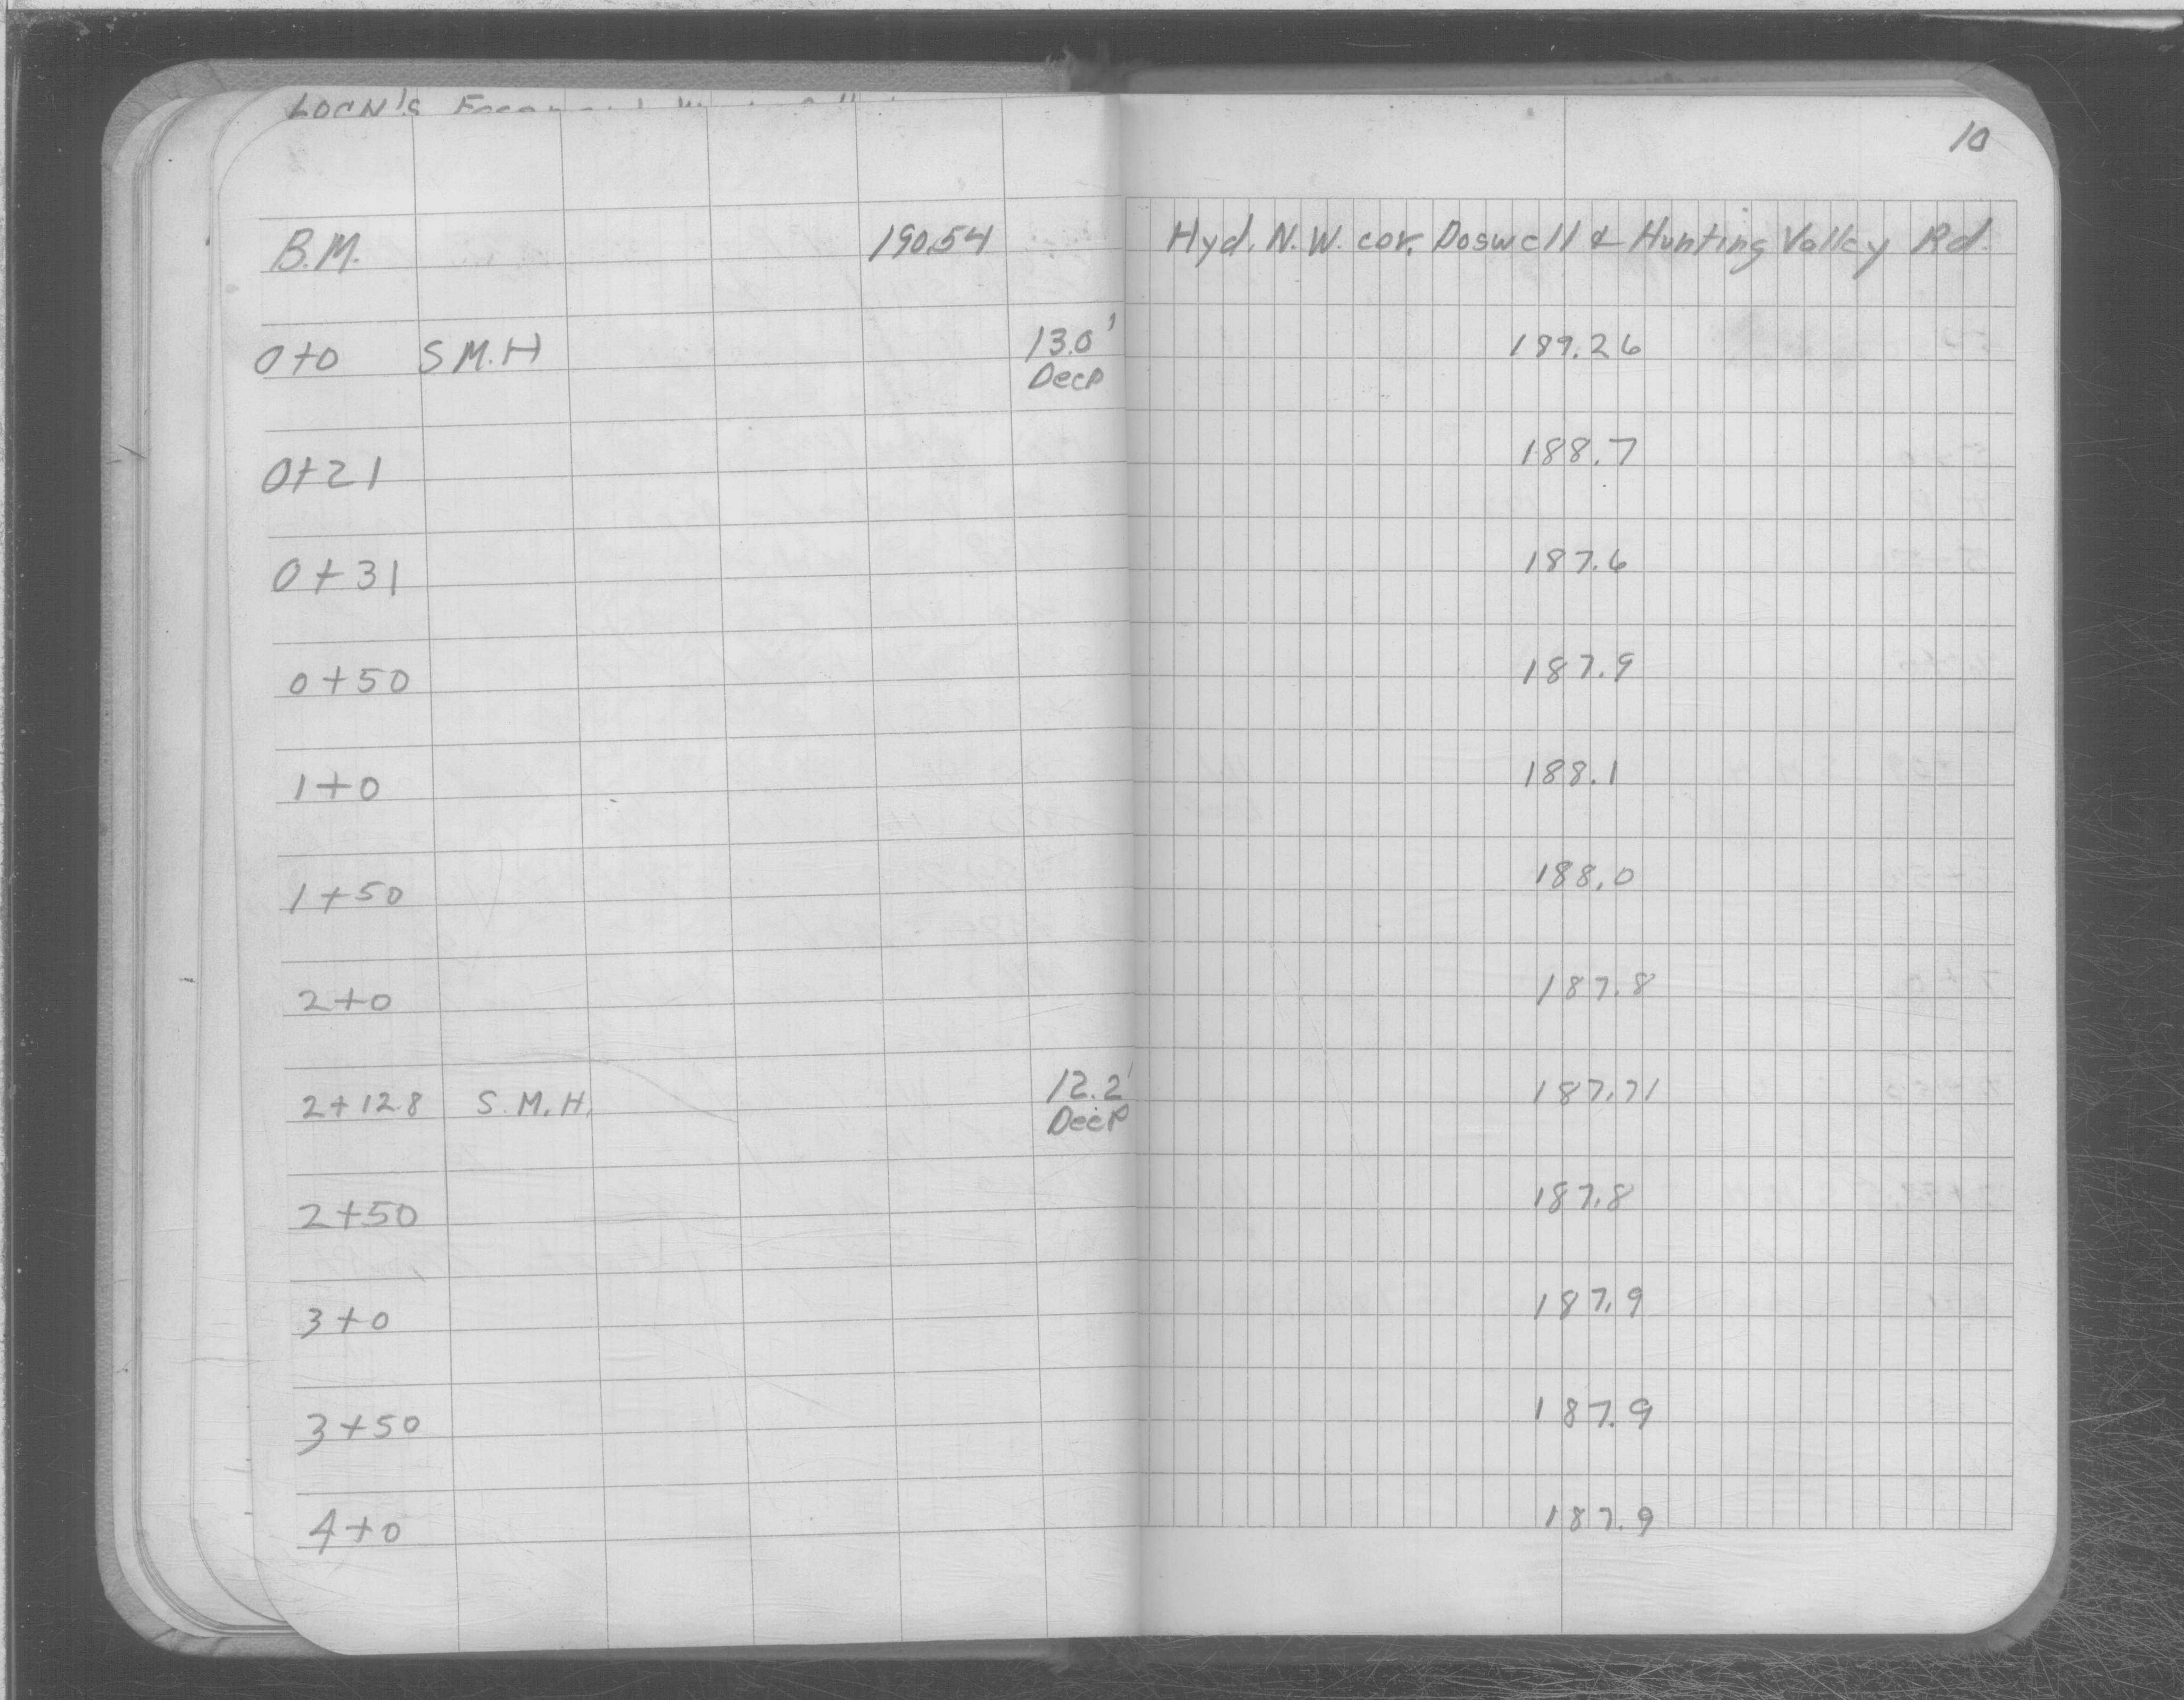 LOCN'S
10
B.M. 190.54 Hyd. N.W. cor. Doswell & Hunting Valley Rd.
0+0 S M.H 13.0' 189.26
Deep
0+21 188.7
0+31 187.6
0+50 187.9
1+0 188.1
1+50 188.0
2+0 187.8
2+12.8 S.M.H. 12.2' 187.71
Deep
2+50 187.8
3+0 187.9
3+50 187.9
4+0 187.9